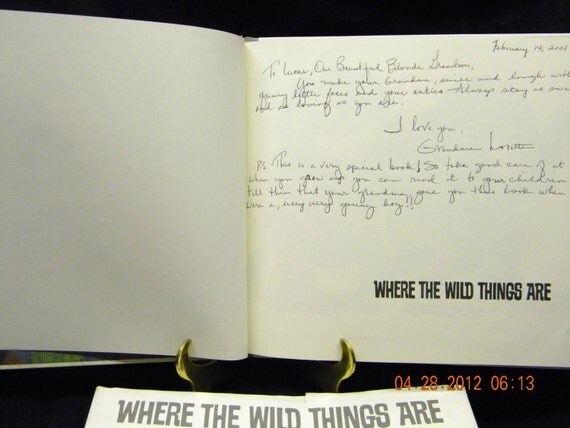 February 14, 2001
To Lucas, Our Beautiful Blonde Grandson,
You make your Grandma, smile and laugh with
funny little faces and your antics. Always stay as swe
and as loving as you are.
I love you,
Grandma Loretta
P.S. This is a very special book! So take good care of it
when you grow up you can read it to your children
tell them that your grandma, gave you this book when
were a, very very young boy!!
WHERE THE WILD THINGS ARE
04.28.2012 06:13
WHERE THE WILD THINGS ARE